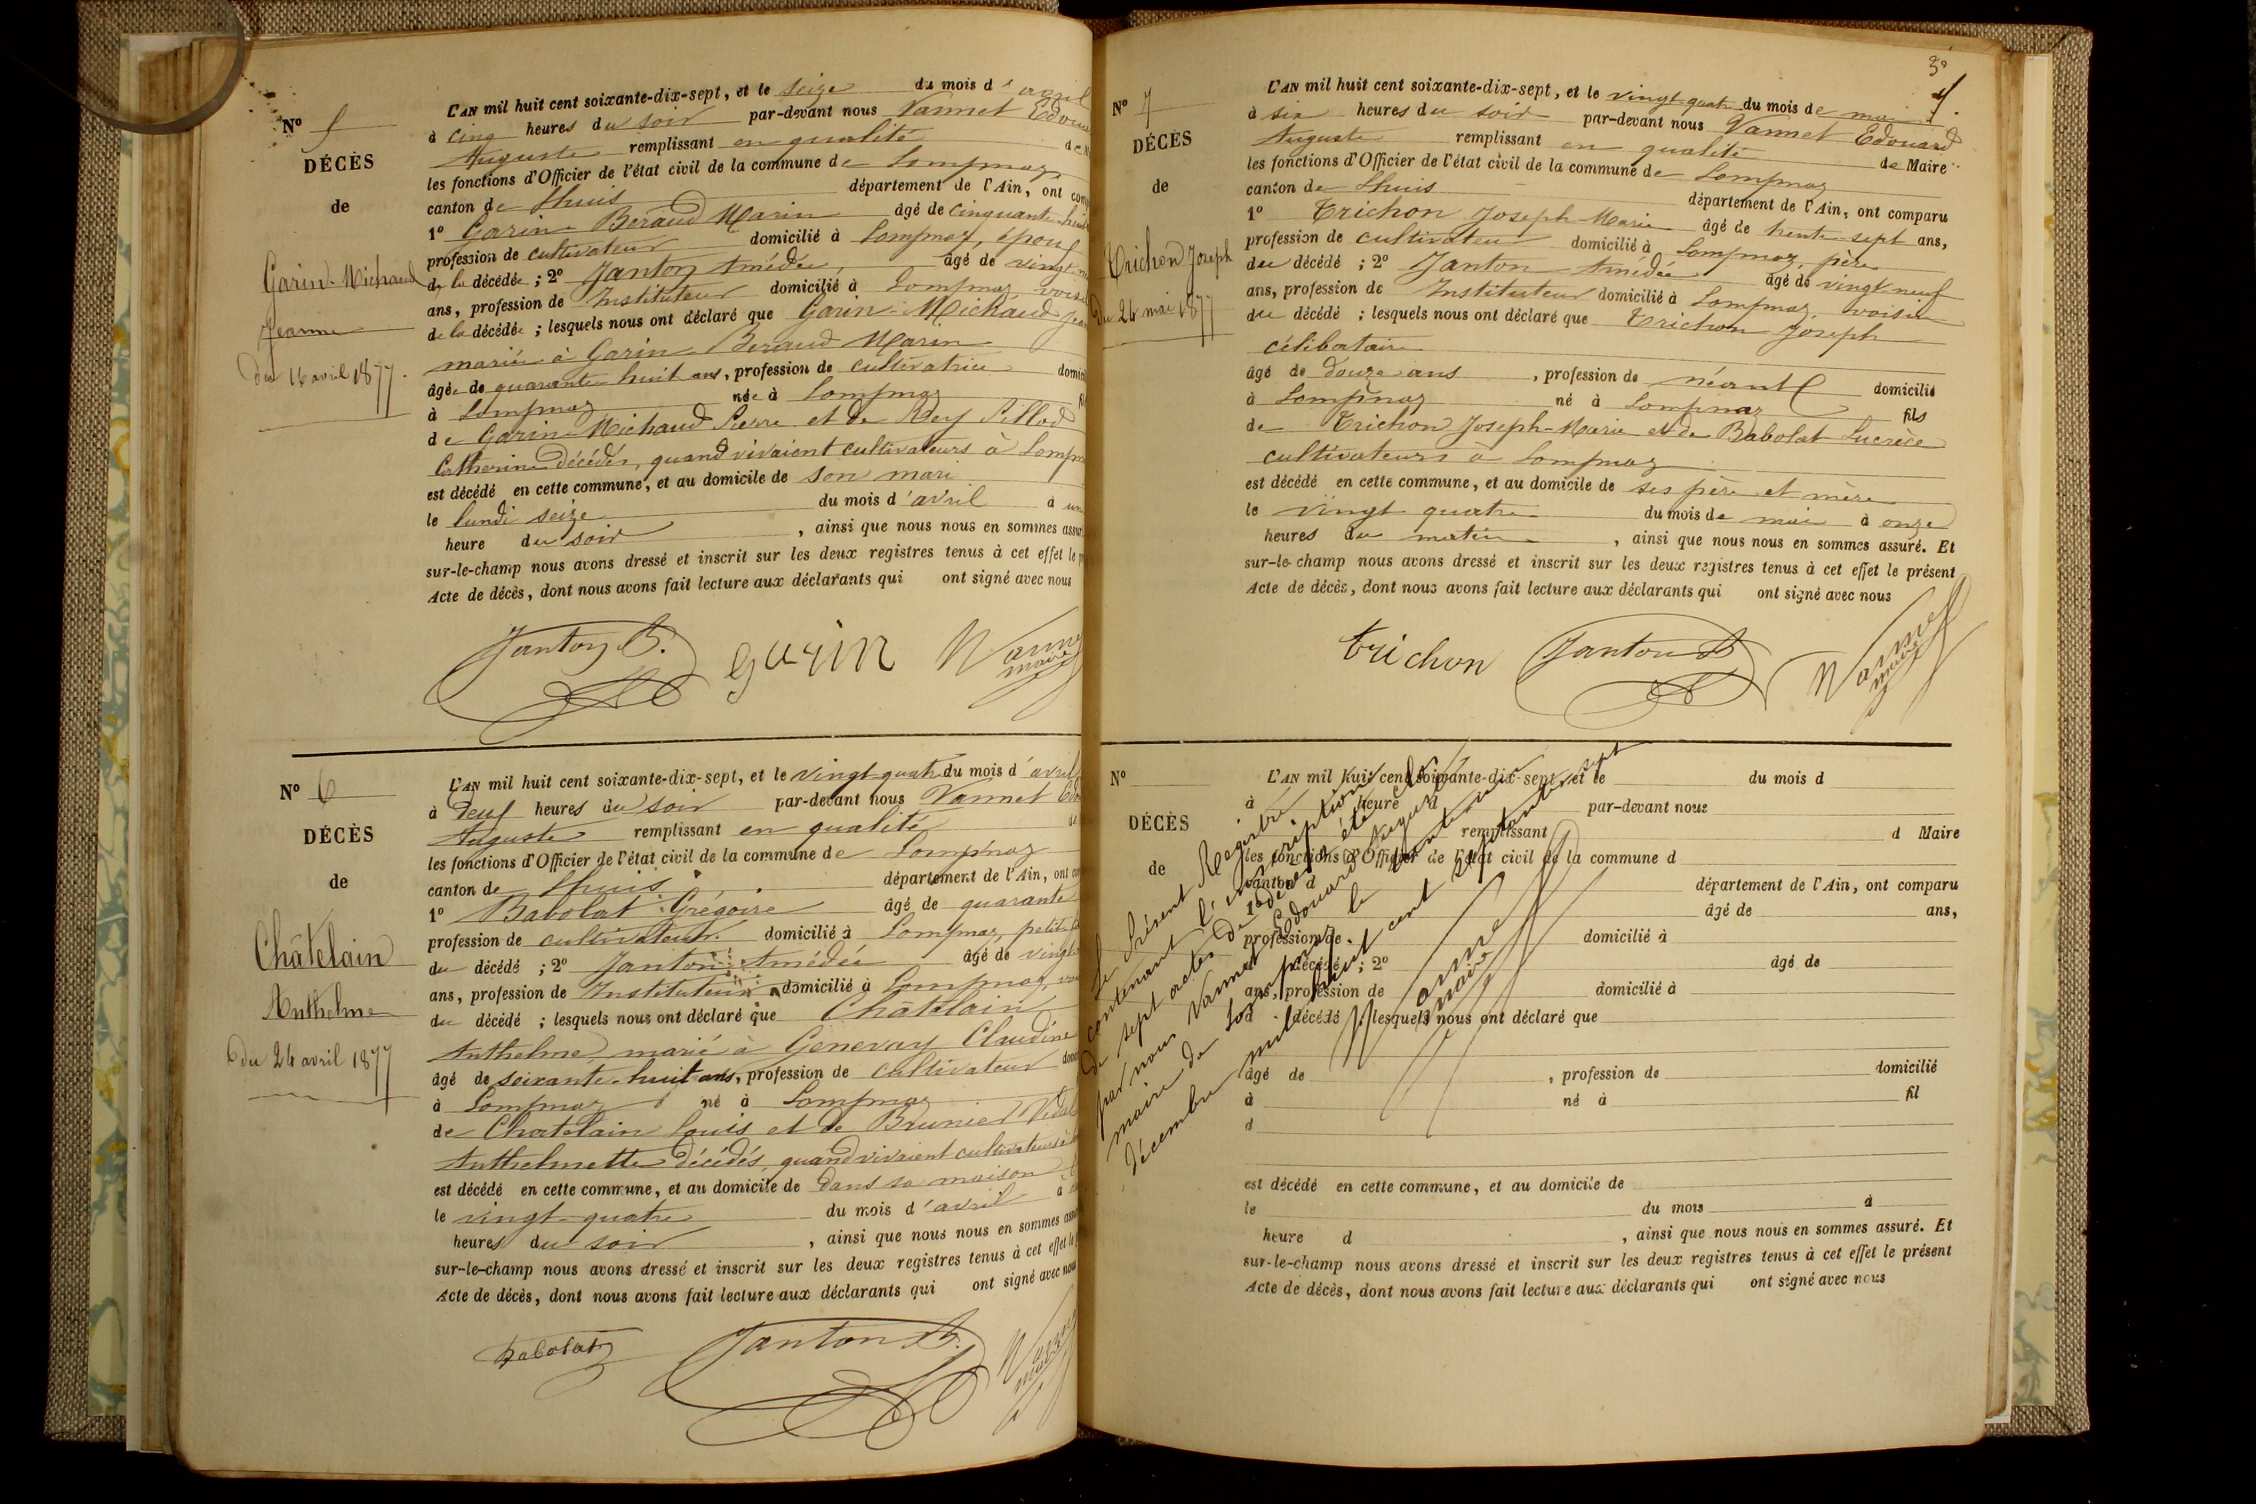 Nº 5
DÉCÈS
de
Garin-Michaud
Jeanne
du 16 avril 1877.
L'AN mil huit cent soixante-dix-sept, et le seize du mois d'avril
à cinq heures du soir par-devant nous Vannet Edoua
Auguste remplissant en qualité de
les fonctions d'Officier de l'état civil de la commune de Lompnaz
canton de Lhuis département de l'Ain, ont comp
1º Garin-Beraud Marin âgé de cinquante-huit
profession de cultivateur domicilié à Lompnaz, époux
de la décédée ; 2º Janton Amédée, âgé de vingt
ans, profession de Instituteur domicilié à Lompnaz voisin
de la décédée ; lesquels nous ont déclaré que Garin-Michaud Jean
mariée à Garin-Beraud Marin
âgée de quarante-huit ans, profession de cultivatrice domici
à Lompnaz née à Lompnaz fil
de Garin-Michaud Pierre et de Rey Pillod
Catherine décédés, quand vivaient cultivateurs à Lompn
est décédé en cette commune, et au domicile de son mari
le lundi seize du mois d'avril à une
heure du soir, ainsi que nous nous en sommes assur
sur-le-champ nous avons dressé et inscrit sur les deux registres tenus à cet effet le p
Acte de décès, dont nous avons fait lecture aux déclarants qui ont signé avec nous
Janton A. garin Vanne
maire
Nº 6
DÉCÈS
de
Châtelain
Anthelme
du 24 avril 1877
L'AN mil huit cent soixante-dix-sept, et le vingt-quatre du mois d'avril
à neuf heures du soir par-devant nous Vannet Edo
Auguste remplissant en qualité de
les fonctions d'Officier de l'état civil de la commune de Lompnaz
canton de Lhuis département de l'Ain, ont co
1º Babolat Grégoire âgé de quarante
profession de cultivateur domicilié à Lompnaz, petit
du décédé ; 2º Janton Amédée âgé de vingt
ans, profession de Instituteur domicilié à Lompnaz, voi
du décédé ; lesquels nous ont déclaré que Châtelain
Anthelme, marié à Genevay Claudine
âgé de soixante-huit ans, profession de cultivateur domi
à Lompnaz né à Lompnaz
de Chatelain Louis et de Brunet Vidal
Anthelmette décédés, quand vivaient cultivateurs à
est décédé en cette commune, et au domicile de dans sa maison
le vingt-quatre du mois d'avril à
heures du soir, ainsi que nous nous en sommes assu
sur-le-champ nous avons dressé et inscrit sur les deux registres tenus à cet effet le
Acte de décès, dont nous avons fait lecture aux déclarants qui ont signé avec nous
Babolat Janton A.
Nº 7
DÉCÈS
de
Trichon Joseph
du 24 mai 1877
L'AN mil huit cent soixante-dix-sept, et le vingt-quatre du mois de mai
à six heures du soir par-devant nous Vannet Edouard
Auguste remplissant en qualité de Maire
les fonctions d'Officier de l'état civil de la commune de Lompnaz
canton de Lhuis département de l'Ain, ont comparu
1º Trichon Joseph-Marie âgé de trente-sept ans,
profession de cultivateur domicilié à Lompnaz, père
du décédé ; 2º Janton Amédée âgé de vingt-neuf
ans, profession de Instituteur domicilié à Lompnaz, voisin
du décédé ; lesquels nous ont déclaré que Trichon Joseph
célibataire
âgé de douze ans, profession de néant domicilié
à Lompnaz né à Lompnaz fils
de Trichon Joseph-Marie et de Babolat Lucrèce
cultivateurs à Lompnaz
est décédé en cette commune, et au domicile de ses père et mère
le vingt quatre du mois de mai à onze
heures du matin, ainsi que nous nous en sommes assuré. Et
sur-le-champ nous avons dressé et inscrit sur les deux registres tenus à cet effet le présent
Acte de décès, dont nous avons fait lecture aux déclarants qui ont signé avec nous
trichon Janton A Vannet
maire
Nº
DÉCÈS
de
L'AN mil huit cent soixante-dix-sept, et le du mois d
à heure d par-devant nous
remplissant d Maire
les fonctions d'Officier de l'état civil de la commune d
canton d département de l'Ain, ont comparu
âgé de ans,
profession de domicilié à
décédé ; 2º âgé de
ans, profession de domicilié à
d décédé ; lesquels nous ont déclaré que
âgé de , profession de domicilié
à né à fil
d
est décédé en cette commune, et au domicile de
le du mois à
heure d , ainsi que nous nous en sommes assuré. Et
sur-le-champ nous avons dressé et inscrit sur les deux registres tenus à cet effet le présent
Acte de décès, dont nous avons fait lecture aux déclarants qui ont signé avec nous
Le Présent Registre
contenant l'inscription
de sept actes de décès a été clos
par nous Vannet Edouard Auguste
maire de Lompnaz le trente un
décembre mil huit cent soixante dix sept
Vannet
maire